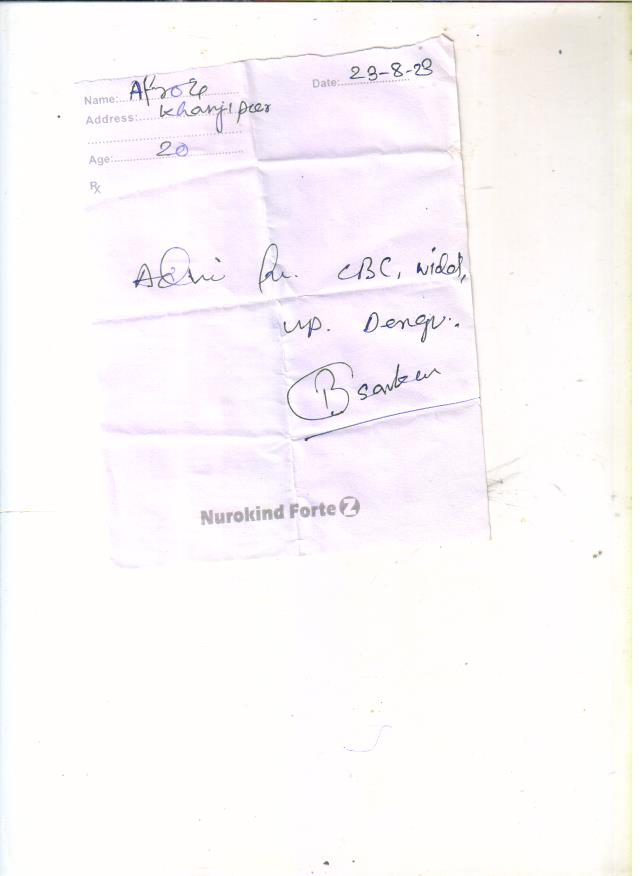 Name: Afroz
Date: 29-8-23
Address: Khanjipeer
Age: 20
Rx
Advi for. CBC, widal,
MP. Dengu.
B sarkar
Nurokind Forte Z